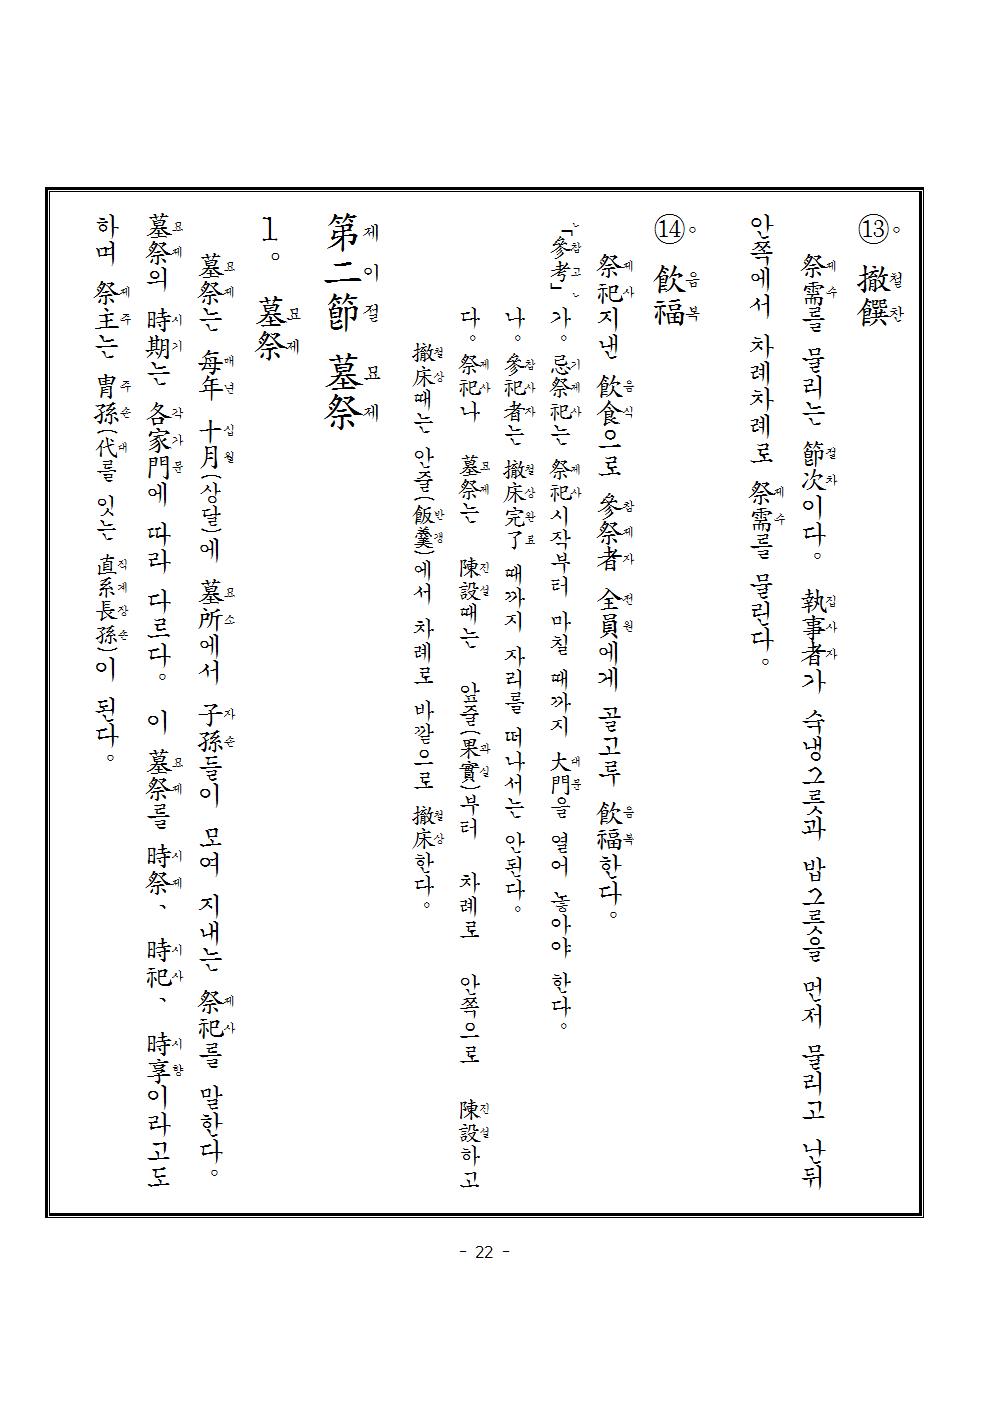 ⑬。撤饌철찬
祭需제수를 물리는 節次절차이다。 執事者집사자가 숙냉그릇과 밥그릇을 먼저 물리고 난뒤
안쪽에서 차례차례로 祭需제수를 물린다。
⑭。飮福음복
祭祀제사지낸 飮食음식으로 參祭者참제자 全員전원에게 골고루 飮福음복한다。
「參考참고」 가。忌祭祀기제사는 祭祀제사시작부터 마칠 때까지 大門대문을 열어 놓아야 한다。
나。參祀者참사자는 撤床完了철상완료 때까지 자리를 떠나서는 안된다。
다。祭祀제사나 墓祭묘제는 陳設진설때는 앞줄(果實과실)부터 차례로 안쪽으로 陳設진설하고
撤床철상때는 안줄(飯羹반갱)에서 차례로 바깥으로 撤床철상한다。
第二節제이절 墓祭묘제
1。 墓祭묘제
墓祭묘제는 每年매년 十月십월(상달)에 墓所묘소에서 子孫자손들이 모여 지내는 祭祀제사를 말한다。
墓祭묘제의 時期시기는 各家門각가문에 따라 다르다。 이 墓祭묘제를 時祭시제、 時祀시사、 時享시향이라고도
하며 祭主제주는 胄孫주손(代대를 잇는 直系長孫직계장손)이 된다。
- 22 -